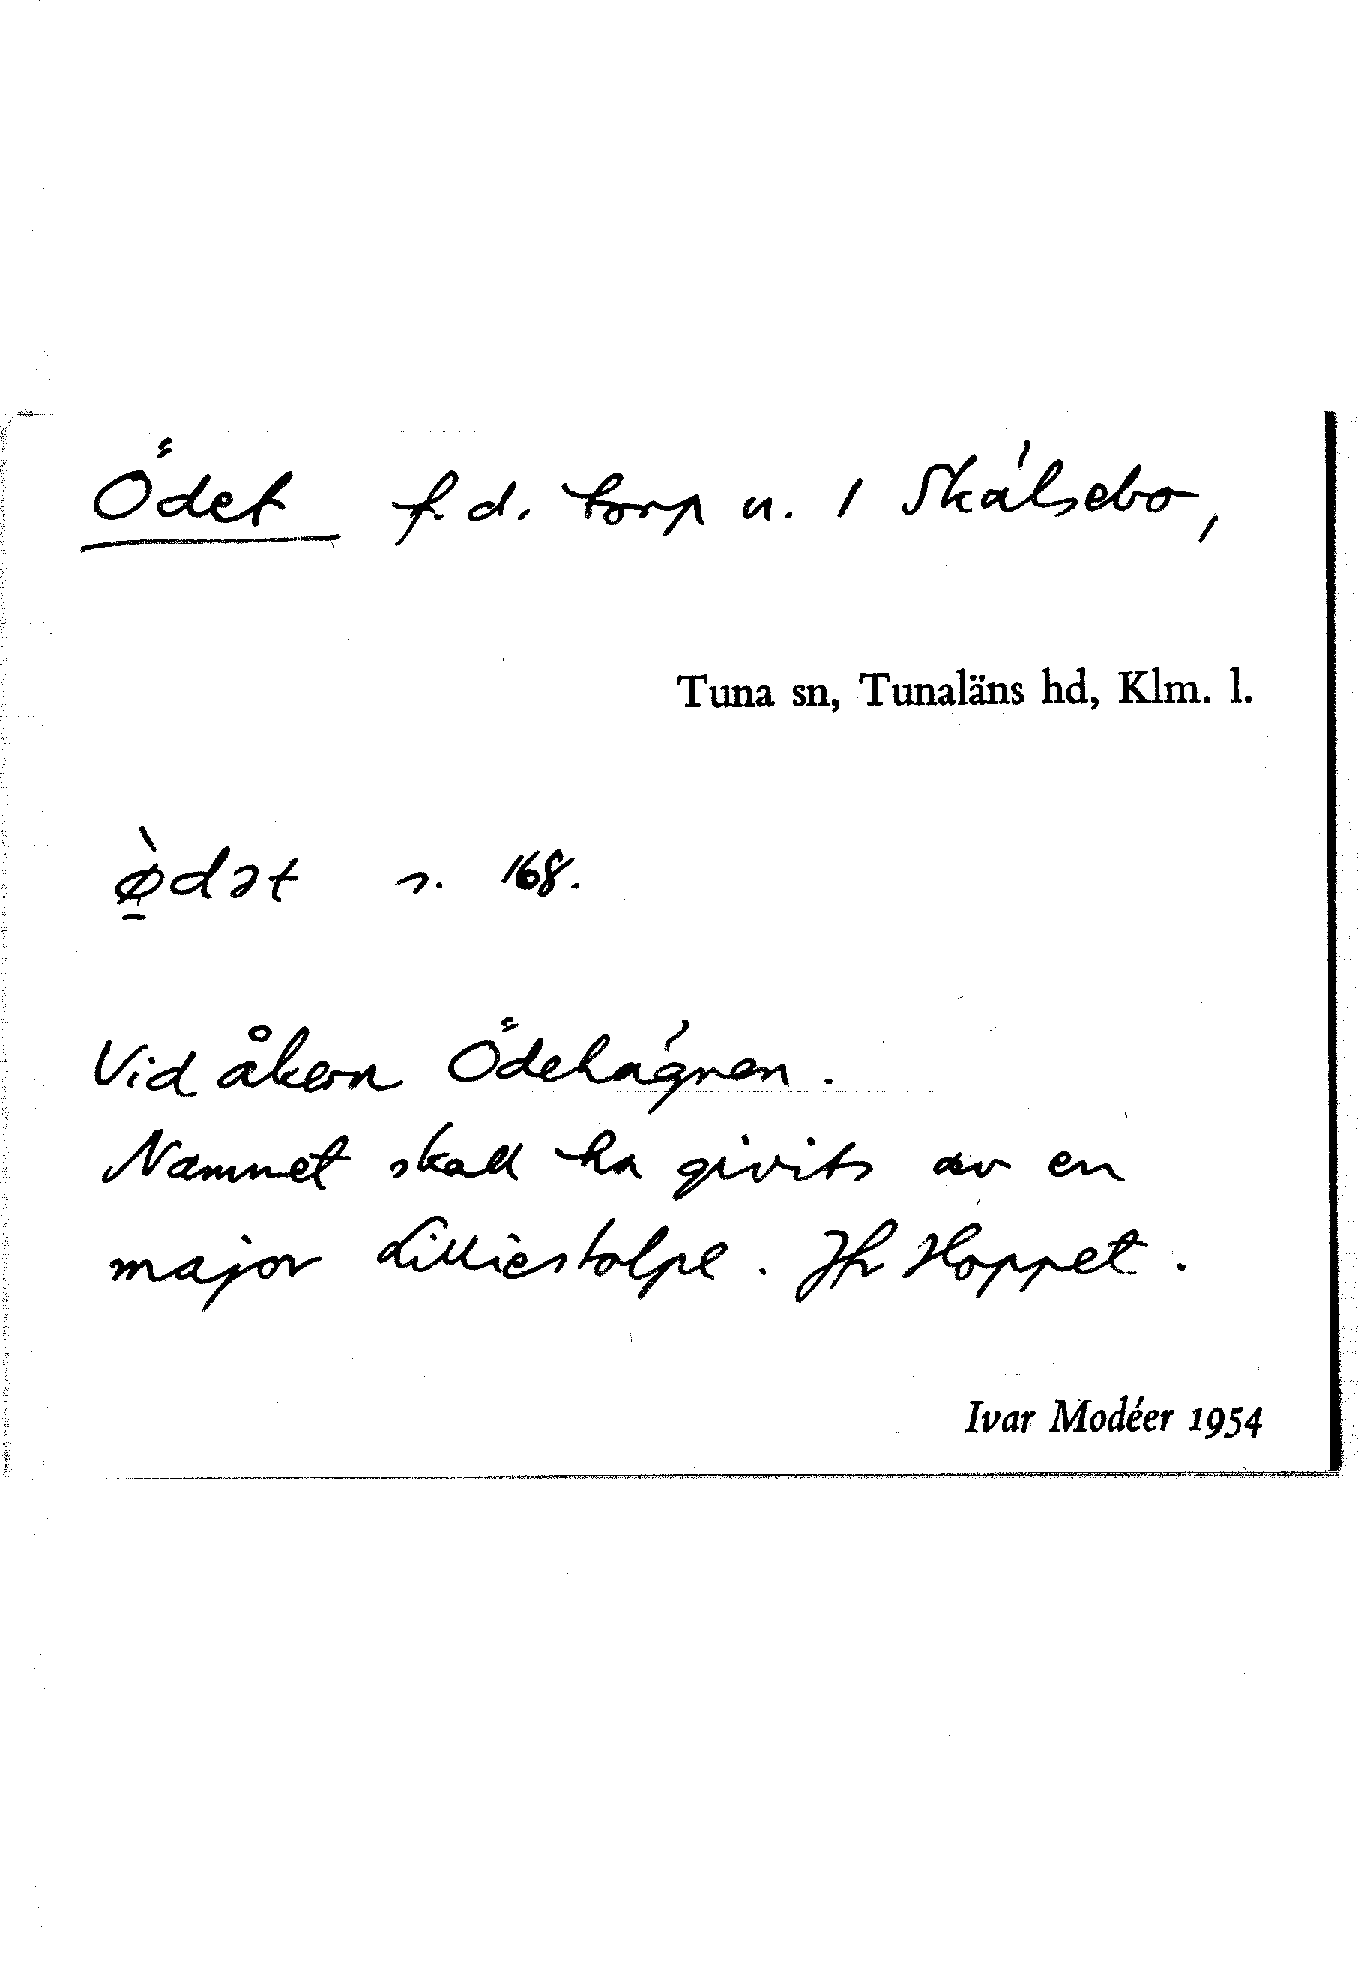 Ödet f.d. torp u. 1 Skälsebo,
Tuna sn, Tunaläns hd, Klm. l.
ø̱̀dət s. 168.
Vid åkern Ödehägnen.
Namnet skall ha givits av en
major Lilliestolpe. Jfr Hoppet.
Ivar Modéer 1954